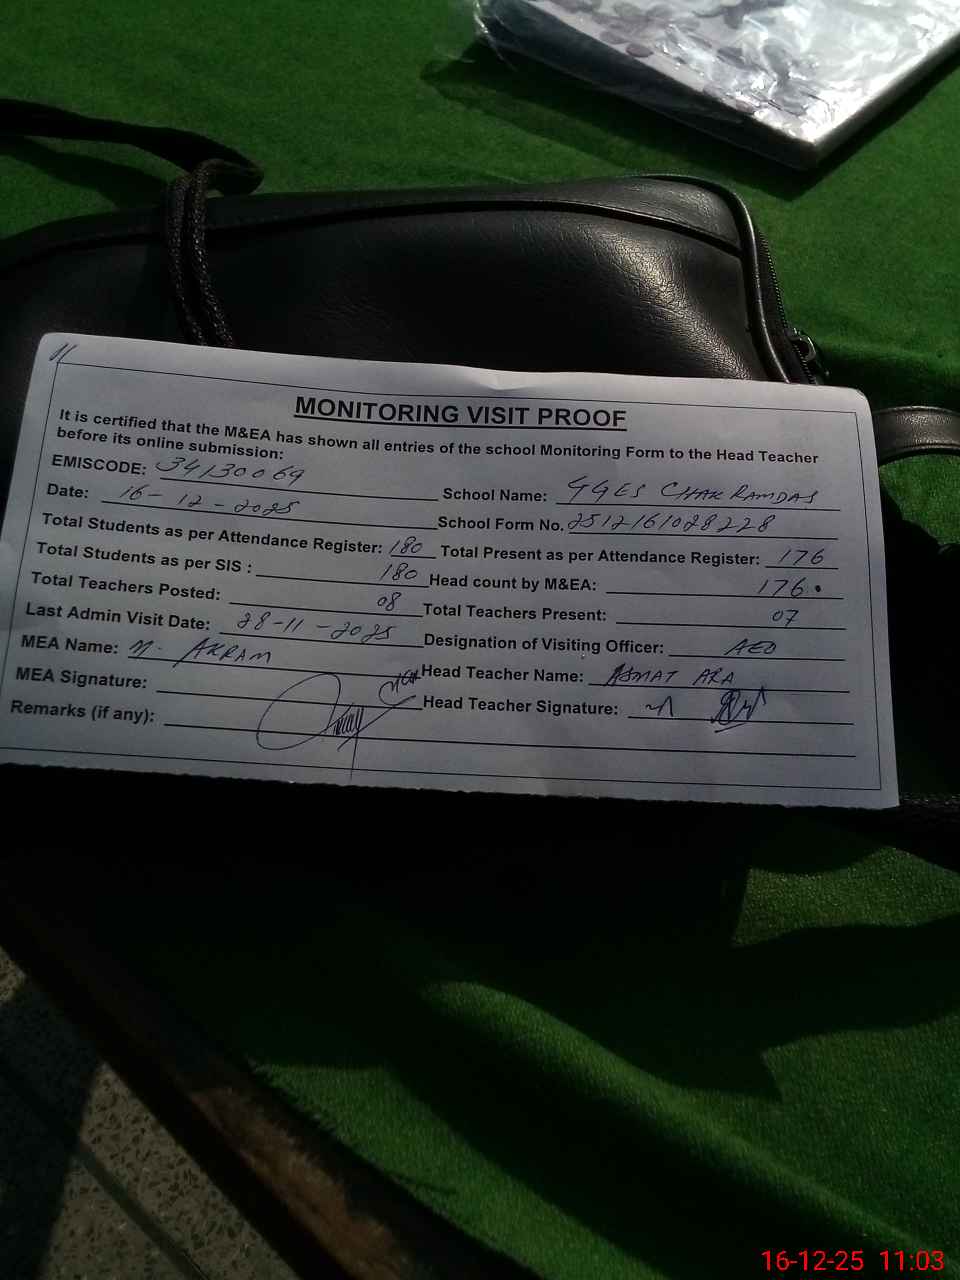 MONITORING VISIT PROOF
It is certified that the M&EA has shown all entries of the school Monitoring Form to the Head Teacher
before its online submission:
EMISCODE: 34130069 School Name: GGES CHAK RAMDAS
Date: 16-12-2025 School Form No. 2512161028228
Total Students as per Attendance Register: 180 Total Present as per Attendance Register: 176
Total Students as per SIS : 180 Head count by M&EA: 176
Total Teachers Posted: 08 Total Teachers Present: 07
Last Admin Visit Date: 28-11-2025 Designation of Visiting Officer: AEO
MEA Name: M. AKRAM Head Teacher Name: ASMAT ARA
MEA Signature: Head Teacher Signature:
Remarks (if any):
16-12-25 11:03